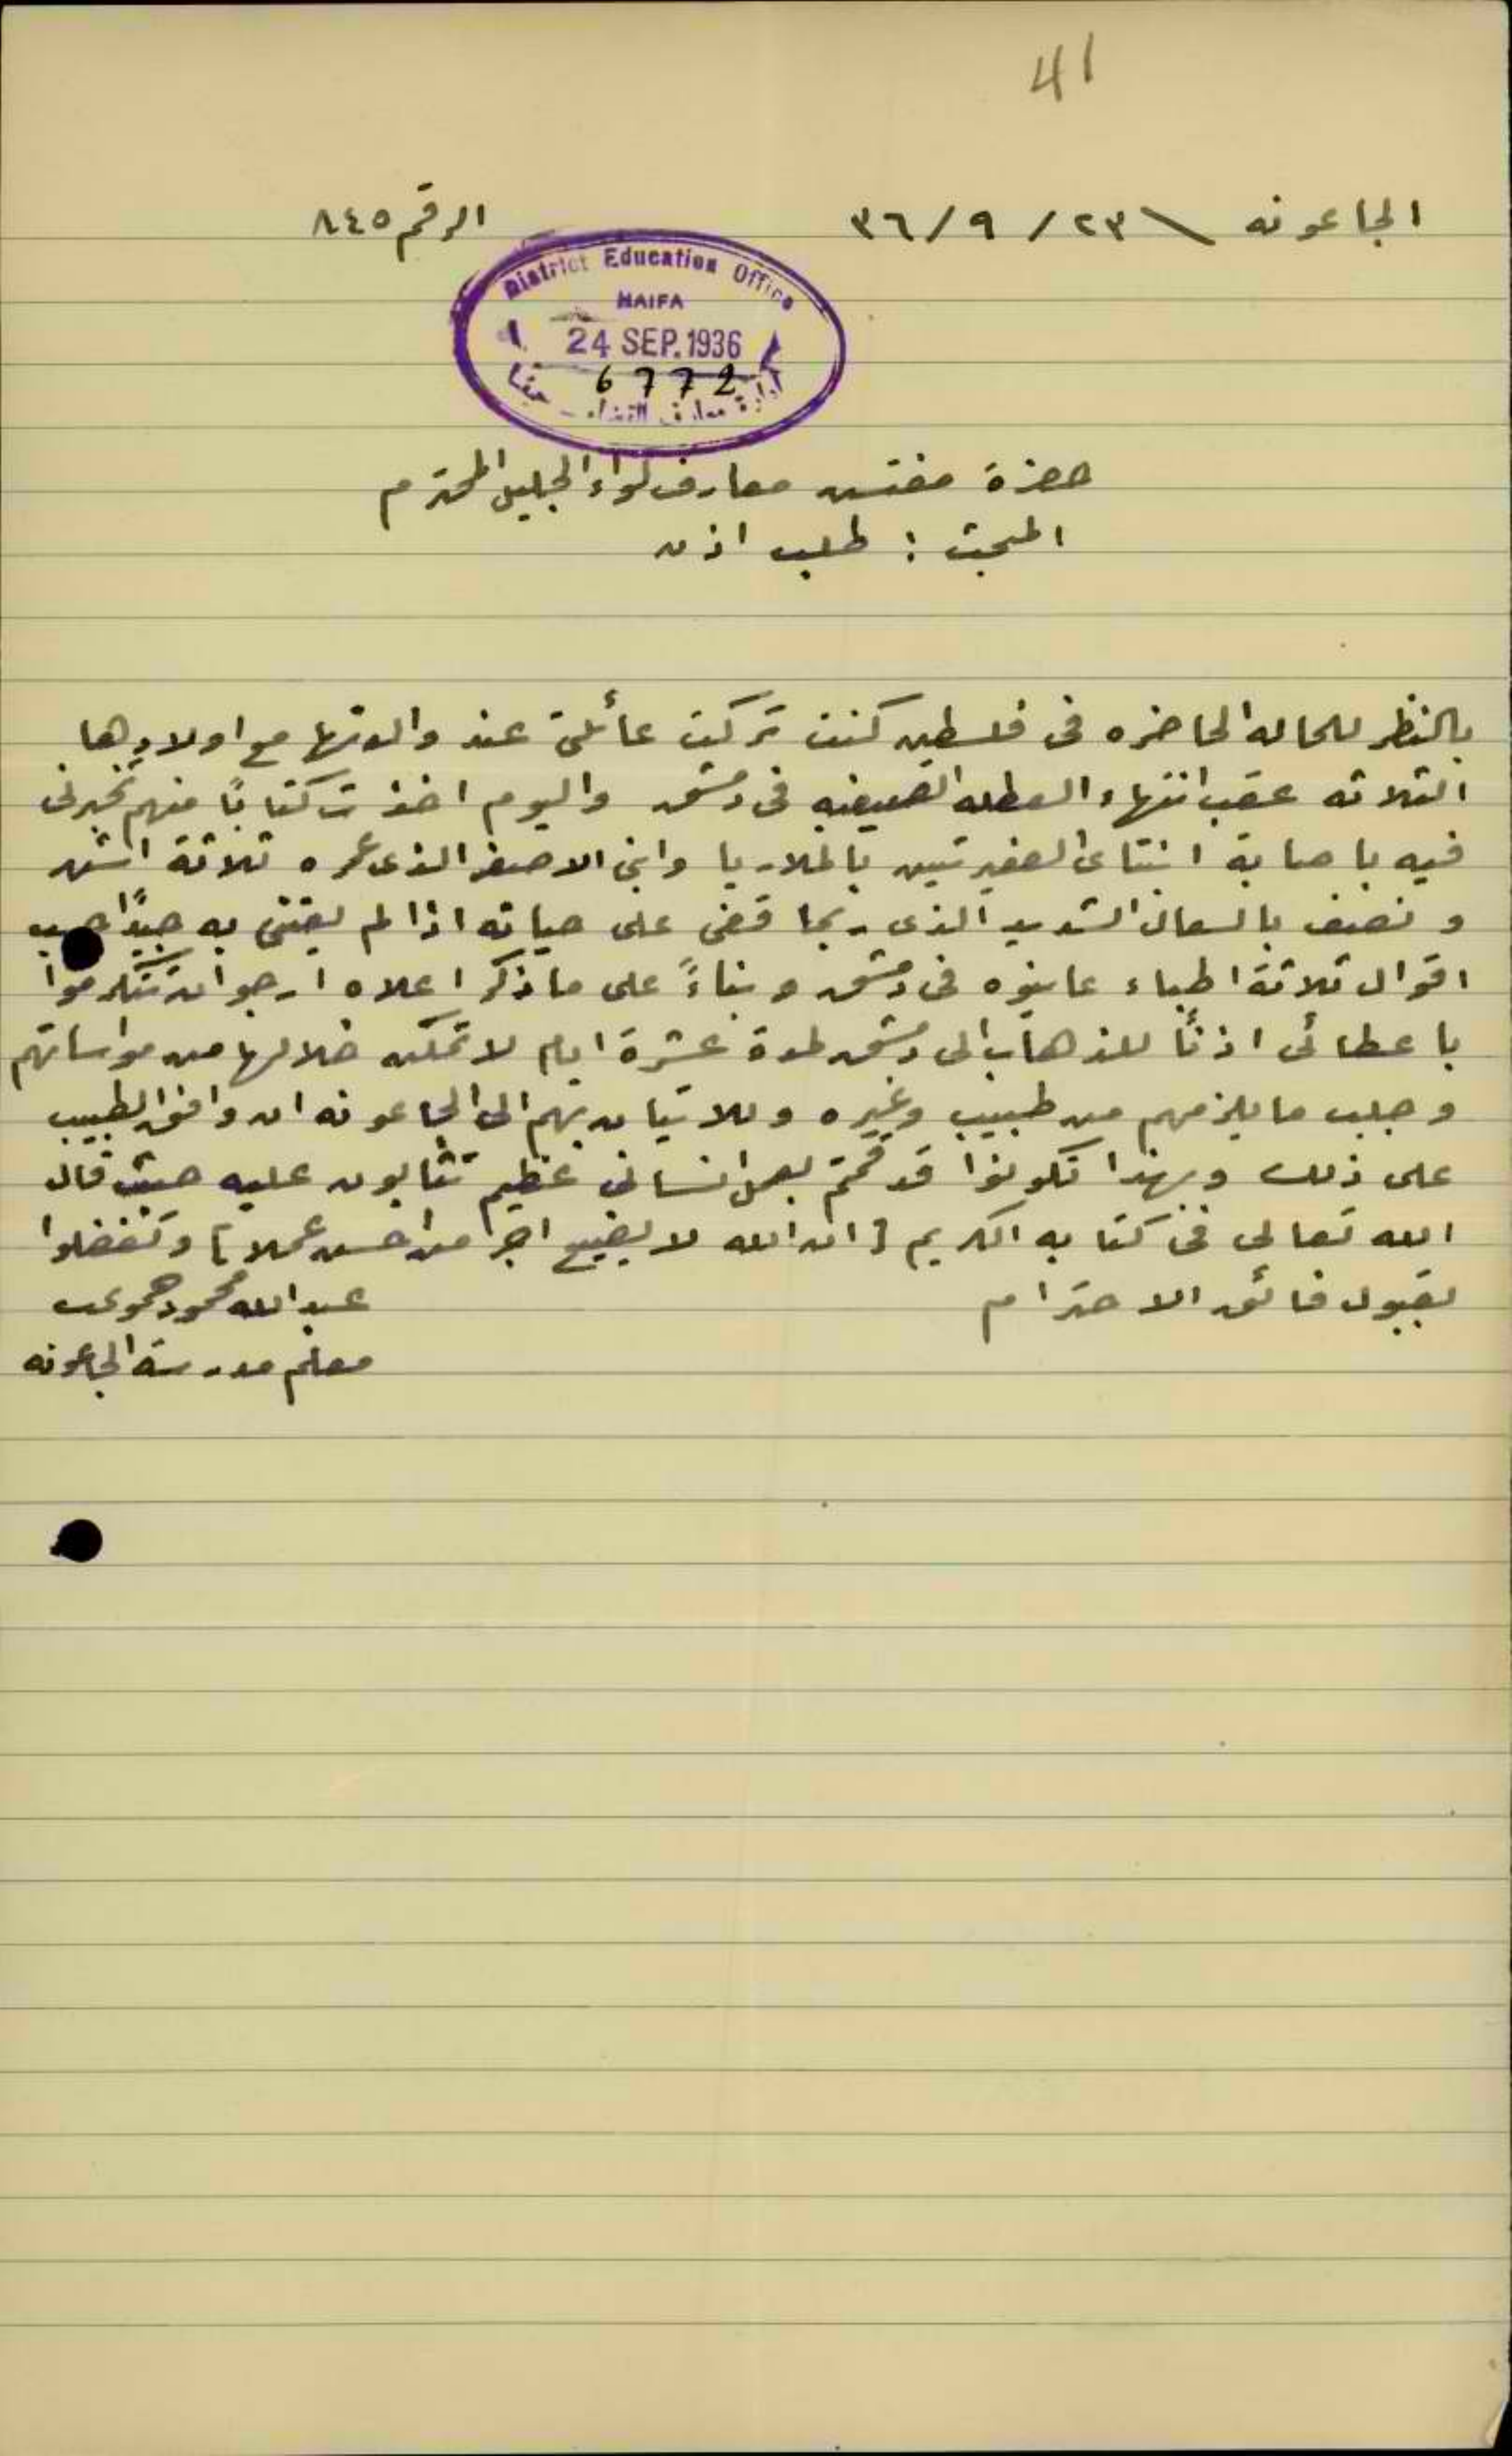 41
الجاعونه \ ٢٣ / ٩ / ٣٦
الرقم ٨٤٥
District Education Office
HAIFA
24 SEP. 1936
6772
ادارة معارف القضاء - حيفا
حضرة مفتش معارف لواء الجليل المحترم
المبحث : طلب اذن
بالنظر للحاله الحاضره فى فلسطين كنت تركت عائلتى عند والدتها مع اولادها
الثلاثه عقب انتهاء العطله الصيفيه فى دمشق واليوم اخذت كتابًا منهم تخبرنى
فيه باصابة ابنتاى الصغيرتين بالملاريا وابنى الاصغر الذى عمره ثلاثة اشهر
ونصف بالسعال الشديد الذى ربما قضى على حياته اذا لم يعتنى به جيدًا حسب
اقوال ثلاثة اطباء عاينوه فى دمشق وبناءً على ما ذكر اعلاه ارجو ان تتكرموا
باعطائى اذنًا للذهاب الى دمشق لمدة عشرة ايام لاتمكن خلالها من مواساتهم
وجلب ما يلزمهم من طبيب وغيره وللاتيان بهم الى الجاعونه ان وافق الطبيب
على ذلك وبهذا تكونوا قد قمتم بعمل انسانى عظيم تثابون عليه حيث قال
الله تعالى فى كتابه الكريم [ ان الله لا يضيع اجر من احسن عملا ] وتفضلوا
بقبول فائق الاحترام
عبدالله محمود
معلم مدرسة الجاعونه